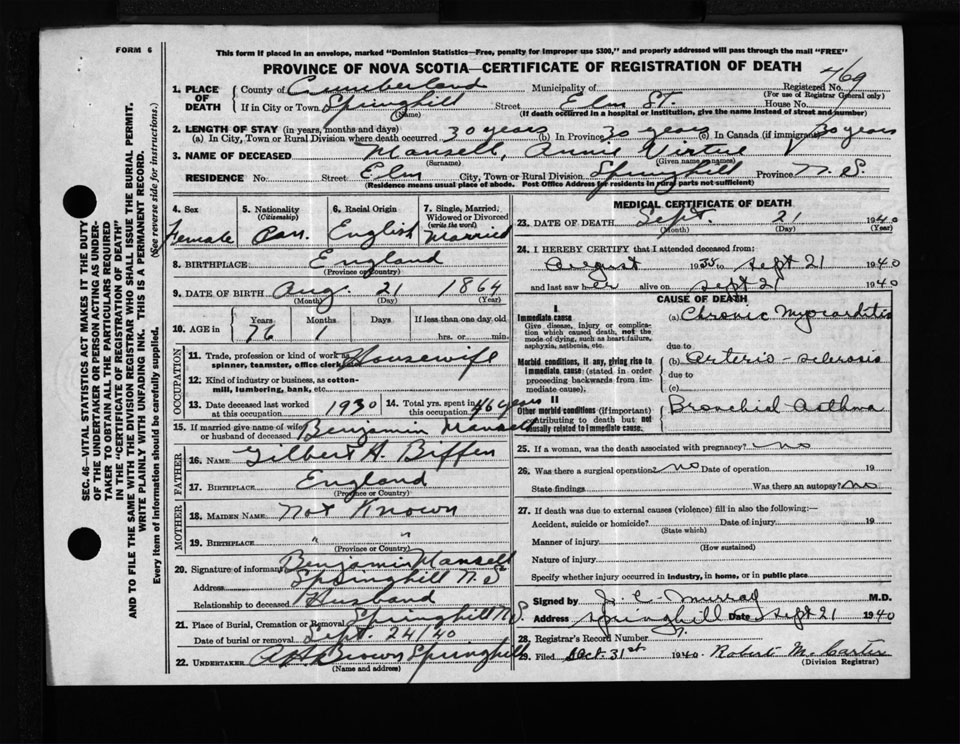 FORM 6
This form if placed in an envelope, marked "Dominion Statistics—Free, penalty for improper use $300," and properly addressed will pass through the mail "FREE"
PROVINCE OF NOVA SCOTIA—CERTIFICATE OF REGISTRATION OF DEATH
SEC. 46—VITAL STATISTICS ACT MAKES IT THE DUTY
OF THE UNDERTAKER OR PERSON ACTING AS UNDER-
TAKER TO OBTAIN ALL THE PARTICULARS REQUIRED
IN THE "CERTIFICATE OF REGISTRATION OF DEATH"
AND TO FILE THE SAME WITH THE DIVISION REGISTRAR WHO SHALL ISSUE THE BURIAL PERMIT.
WRITE PLAINLY WITH UNFADING INK. THIS IS A PERMANENT RECORD.
Every item of information should be carefully supplied. (See reverse side for instructions.)
1. PLACE OF DEATH
County of Cumberland Municipality of Registered No. 469
(For use of Registrar General only)
If in City or Town Springhill Street Elm St. House No.
(Name) (If death occurred in a hospital or institution, give the name instead of street and number)
2. LENGTH OF STAY (in years, months and days)
(a) In City, Town or Rural Division where death occurred 30 years (b) In Province 30 years (c) In Canada (if immigrant) 30 years
3. NAME OF DECEASED Mansell, Annie Virtue
(Surname) (Given name or names)
RESIDENCE No. Street Elm City, Town or Rural Division Springhill Province N. S.
(Residence means usual place of abode. Post Office Address for residents in rural parts not sufficient)
4. Sex Female
5. Nationality (Citizenship) Can.
6. Racial Origin English
7. Single, Married, Widowed or Divorced (write the word) Married
8. BIRTHPLACE England
(Province or Country)
9. DATE OF BIRTH Aug. 21 1864
(Month) (Day) (Year)
10. AGE in Years 76 Months 1 Days If less than one day old hrs. or min.
OCCUPATION
11. Trade, profession or kind of work as spinner, teamster, office clerk, etc. Housewife
12. Kind of industry or business, as cotton-mill, lumbering, bank, etc.
13. Date deceased last worked at this occupation 1930
14. Total yrs. spent in this occupation 46 years
15. If married give name of wife or husband of deceased Benjamin Mansell
FATHER
16. Name Gilbert A. Biffen
17. Birthplace England
(Province or Country)
MOTHER
18. Maiden Name Not Known
19. Birthplace " "
(Province or Country)
20. Signature of informant Benjamin Mansell
Address Springhill N. S.
Relationship to deceased Husband
21. Place of Burial, Cremation or Removal Springhill N.S.
Date of burial or removal Sept. 24/40
22. UNDERTAKER Brown Springhill
(Name and address)
MEDICAL CERTIFICATE OF DEATH
23. DATE OF DEATH Sept. 21 1940
(Month) (Day) (Year)
24. I HEREBY CERTIFY that I attended deceased from:
August 1938 to Sept 21 1940
and last saw her alive on Sept 21 1940
CAUSE OF DEATH
I
Immediate cause
Give disease, injury or complication which caused death, not the mode of dying, such as heart failure, asphyxia, asthenia, etc.
(a) Chronic Myocarditis
due to
Morbid conditions, if any, giving rise to immediate cause: (stated in order proceeding backwards from immediate cause),
(b) Arterio-sclerosis
due to
(c)
II
Other morbid conditions (if important) contributing to death but not causally related to immediate cause.
Bronchial Asthma
25. If a woman, was the death associated with pregnancy? no
26. Was there a surgical operation? no Date of operation 19
State findings Was there an autopsy? no
27. If death was due to external causes (violence) fill in also the following:—
Accident, suicide or homicide? Date of injury 19
(State which)
Manner of injury
(How sustained)
Nature of injury
Specify whether injury occurred in industry, in home, or in public place
Signed by J. C. Murray M.D.
Address Springhill Date Sept 21 1940
28. Registrar's Record Number
29. Filed Oct. 31st 1940. Robert M. Carter
(Division Registrar)